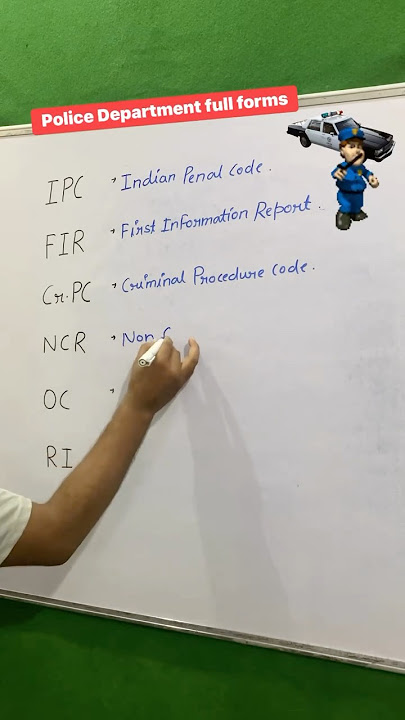 Police Department full forms
IPC → Indian Penal Code.
FIR → First Information Report.
Cr.PC → Criminal Procedure Code.
NCR → Non
OC →
RI